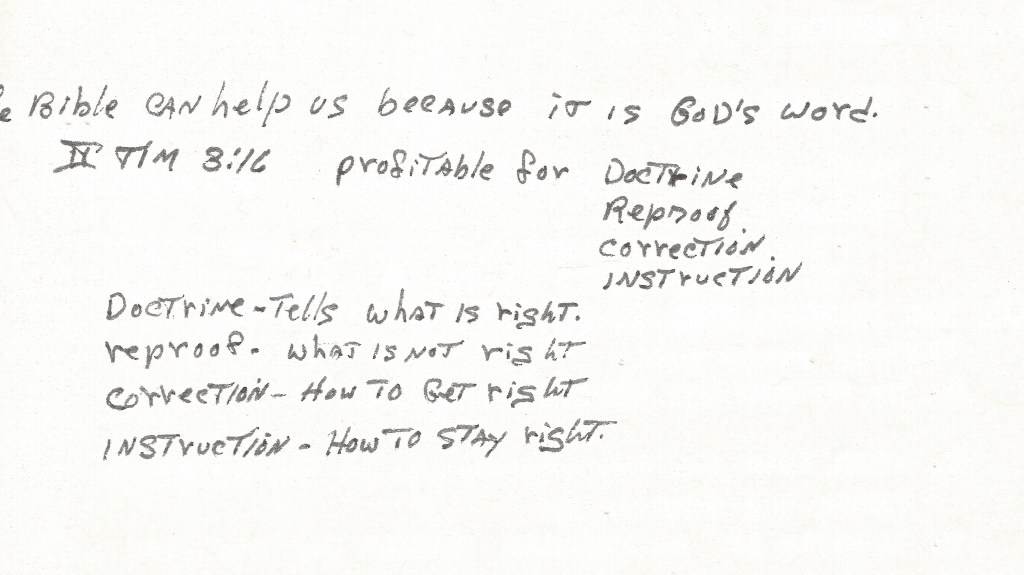 e Bible CAN help us because it is God's word.
II TIM 3:16 profitable for Doctrine
Reproof.
correction.
INSTruction
Doctrine - Tells what is right.
reproof - what is not right
correction - How To Get right
INSTruction - How To STAY right.